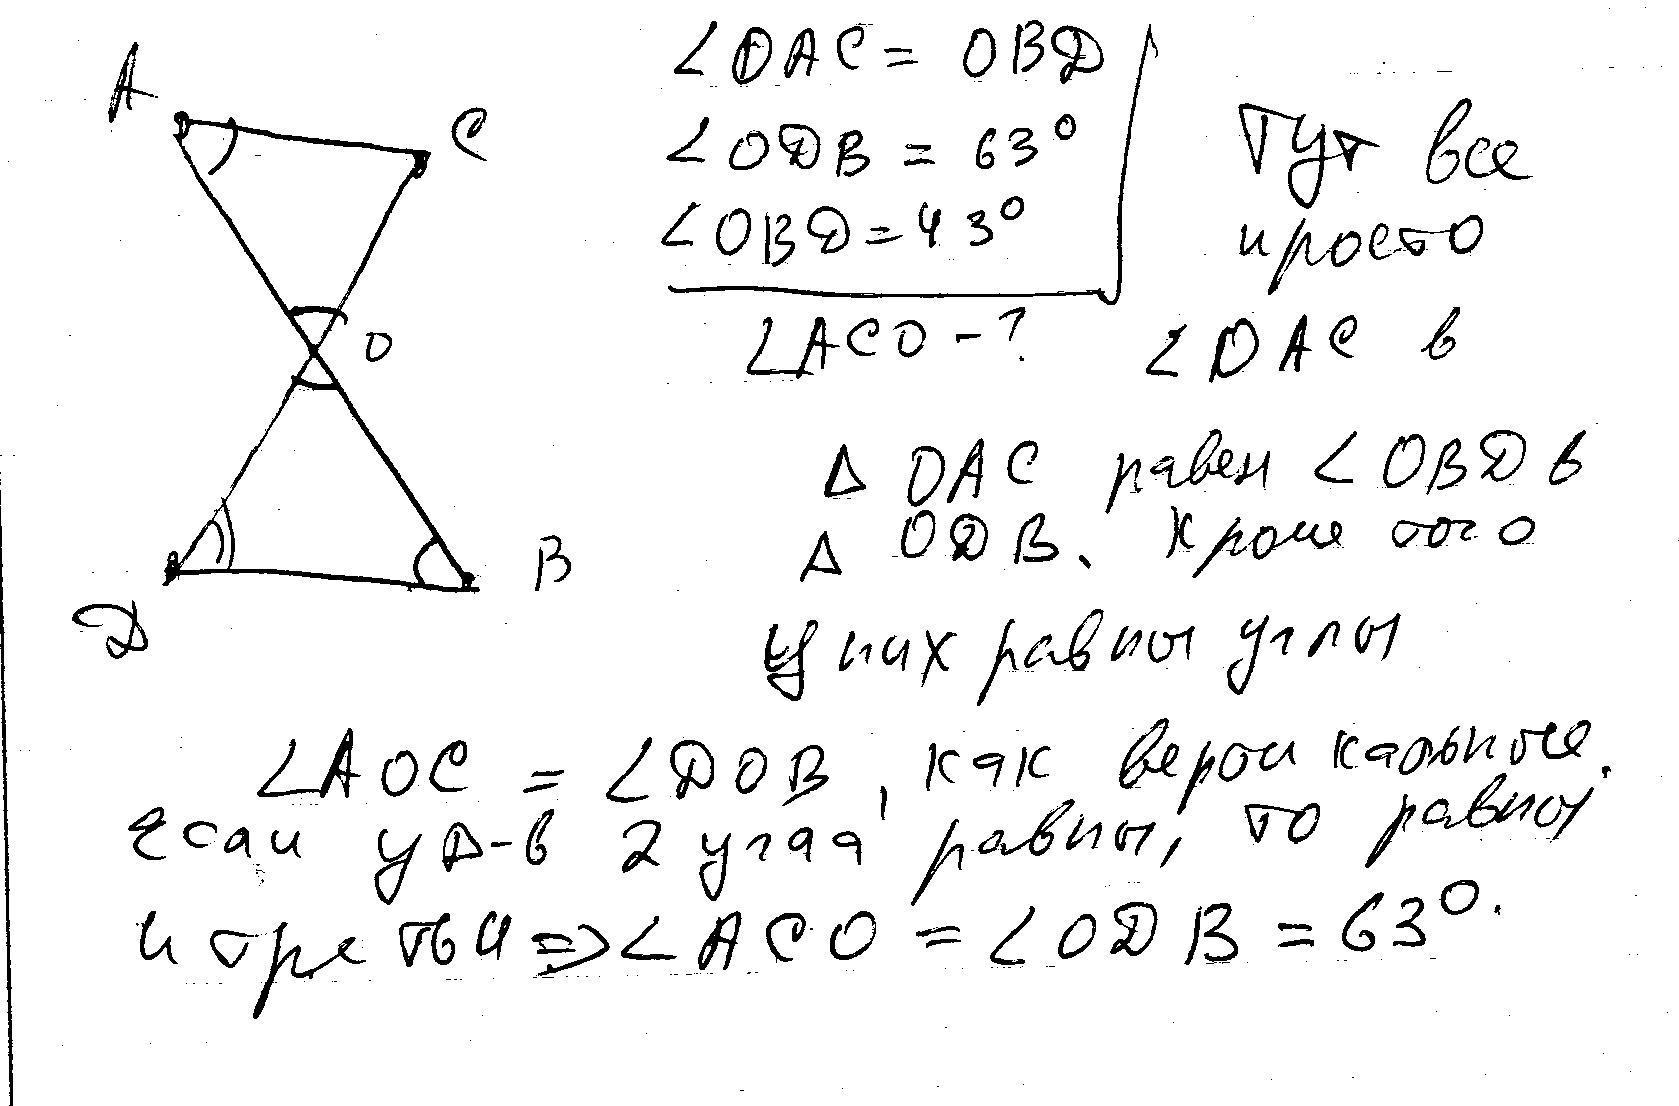 A
C
O
D
B
∠OAC = OBD
∠ODB = 63°
∠OBD = 43°
∠ACO - ?
Тут все
просто
∠OAC в
Δ OAC равен ∠OBD в
Δ ODB. Кроме того
у них равны углы
∠AOC = ∠DOB, как вертикальные.
Если у Δ-в 2 угла равны, то равны
и третьи => ∠ACO = ∠ODB = 63°.